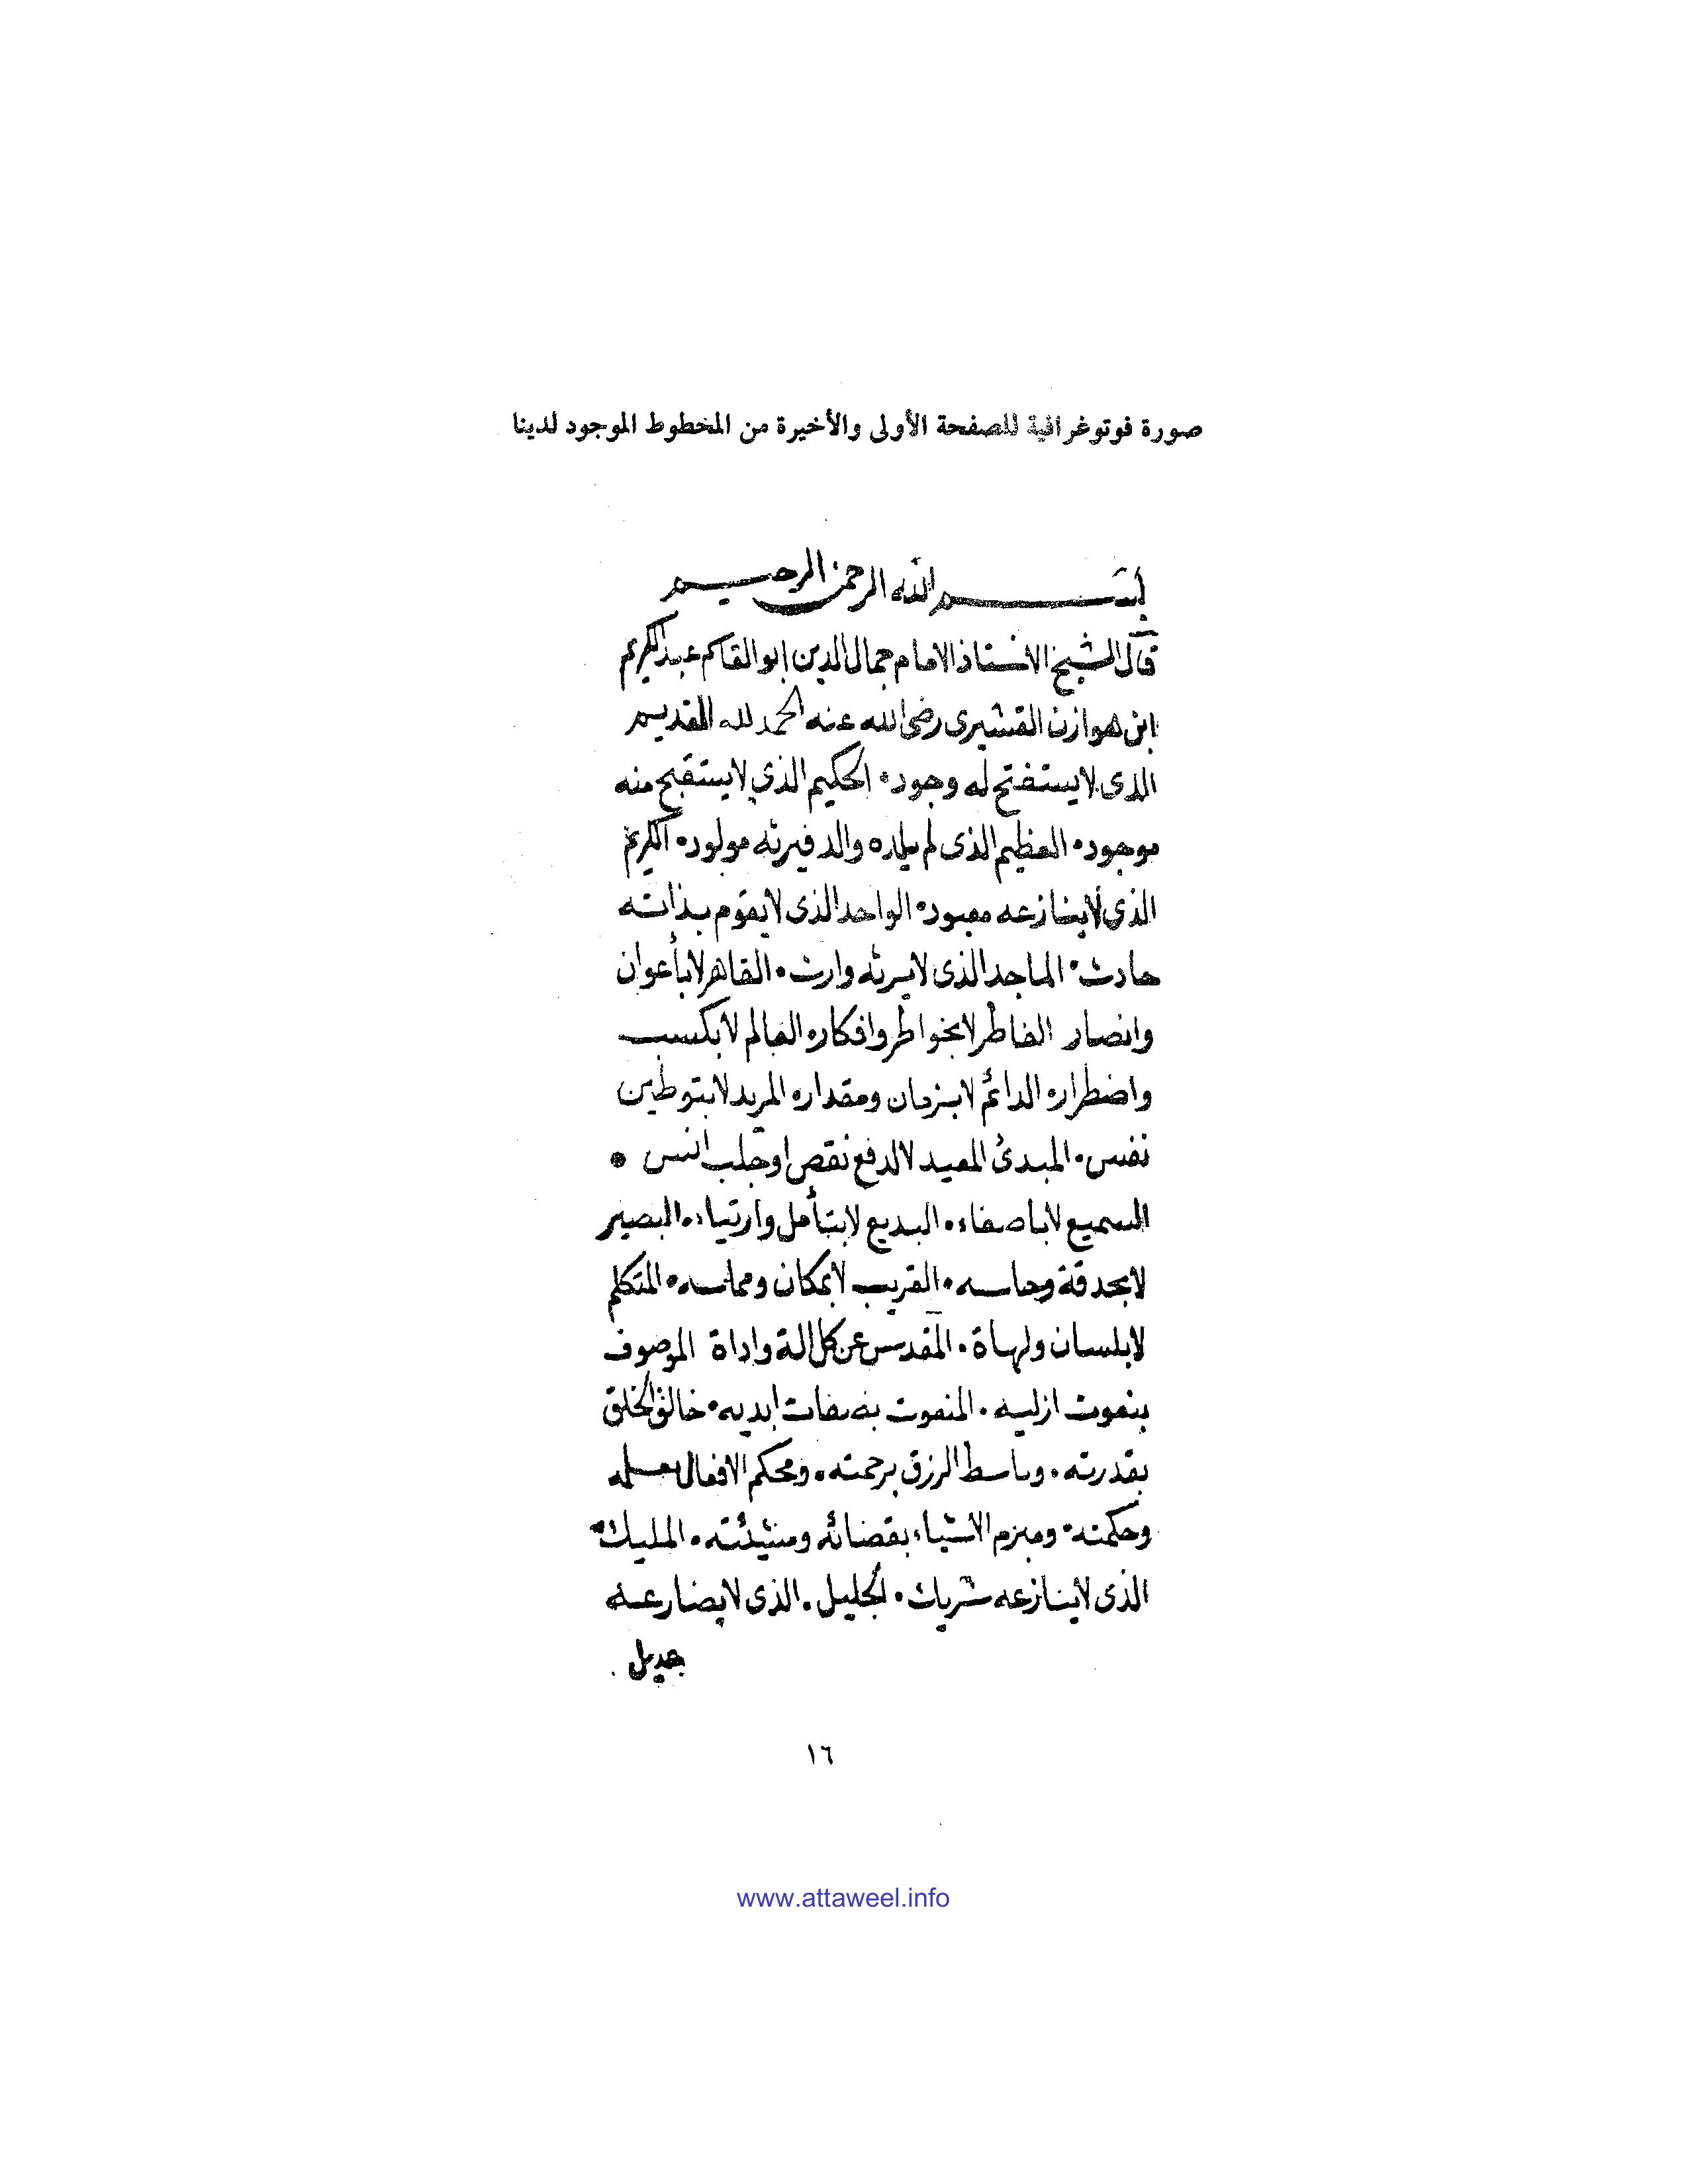 صورة فوتوغرافية للصفحة الأولى والأخيرة من المخطوط الموجود لدينا
بسم الله الرحمن الرحيم
قال الشيخ الاستاذ الامام جمال الدين ابو القاسم عبد الكريم
ابن هوازن القشيرى رضى الله عنه الحمد لله القديم
الذى لا يستفتح له وجود • الحكيم الذى لا يستقبح منه
موجود • العظيم الذى لم يلده والد فيرثه مولود • الكريم
الذى لا ينازعه معبود • الواحد الذى لا يقوم بذاته
حادث • الماجد الذى لا يرثه وارث • القاهر لا بأعوان
وانصار الفاطر لا بخواطر وافكار • العالم لا بكسب
واضطرار • الدائم لا بزمان ومقدار • المريد لا بتوطين
نفس • المبدئ المعيد لا لدفع نقص او جلب انس •
السميع لا باصغاء • البديع لا بتأمل وارتياء • البصير
لا بحدقة وحاسه • القريب لا بمكان ومماسه • المتكلم
لا بلسان ولهاة • المقدس عن كل الة واداة الموصوف
بنعوت ازليه • المنعوت بصفات ابديه • خالق الخلق
بقدرته • وباسط الرزق برحمته • ومحكم الافعال بعلمه
وحكمته • ومبرم الاشياء بقضائه ومشيئته • المليك
الذى لا ينازعه شريك • الجليل • الذى لا يضارعه
عديل
١٦
www.attaweel.info